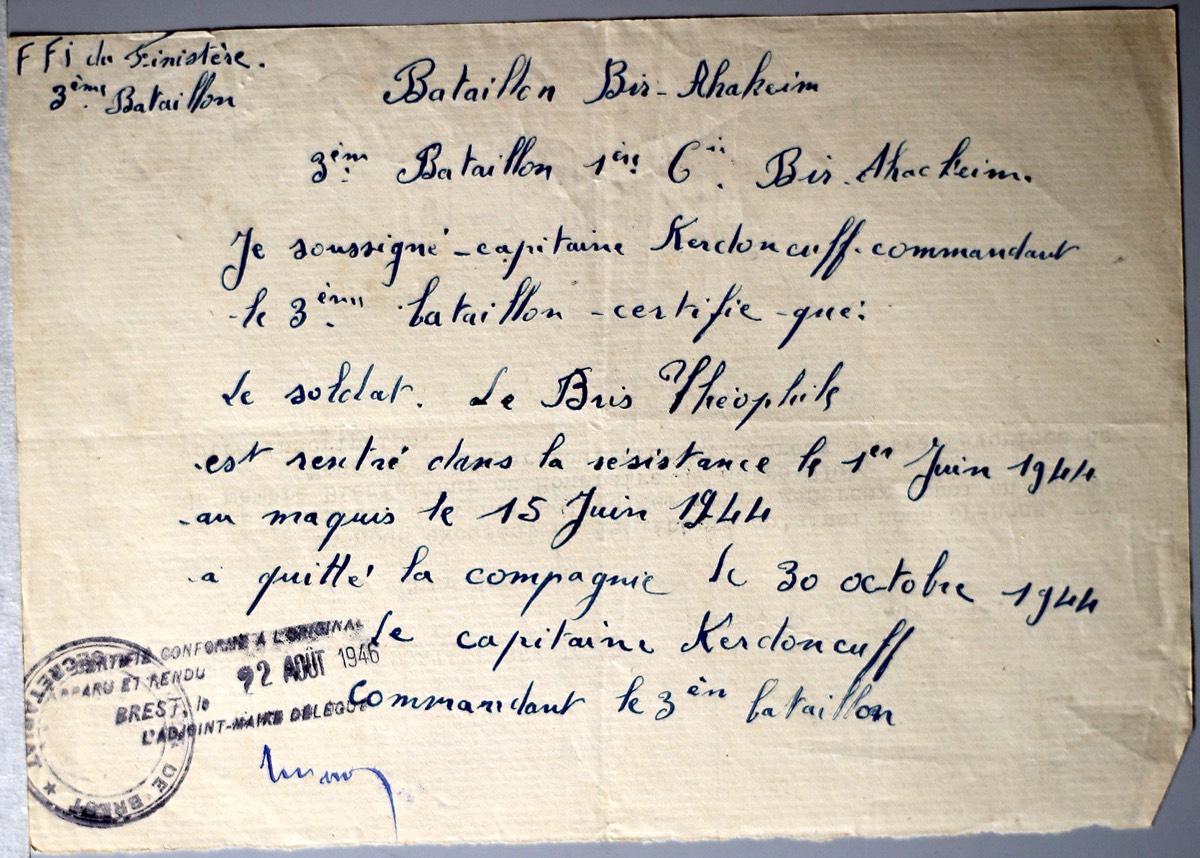 FFI du Finistère.
3ème Bataillon
Bataillon Bir-Ahakeim
3ème Bataillon 1ère Cie Bir-Ahackeim.
Je soussigné-capitaine Kerdoncuff-commandant
-le 3ème bataillon-certifie-que:
Le soldat. Le Bris Théophile
-est rentré dans la résistance le 1er Juin 1944
-au maquis le 15 Juin 1944
-a quitté la compagnie le 30 octobre 1944
Le capitaine Kerdoncuff
Commandant le 3èm bataillon
CERTIFIÉ CONFORME A L'ORIGINAL
PARU ET RENDU
BREST, le 22 AOÛT 1946
L'ADJOINT-MAIRE DÉLÉGUÉ
SECRETARIAT
DE BREST